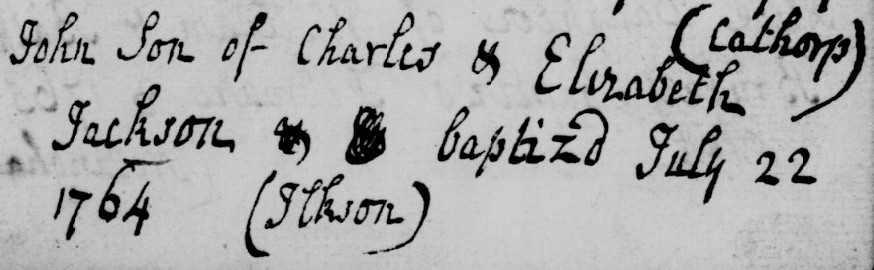 John Son of Charles & Elizabeth (Cathorp)
Jackson & baptizd July 22
1764 (Ilkson)